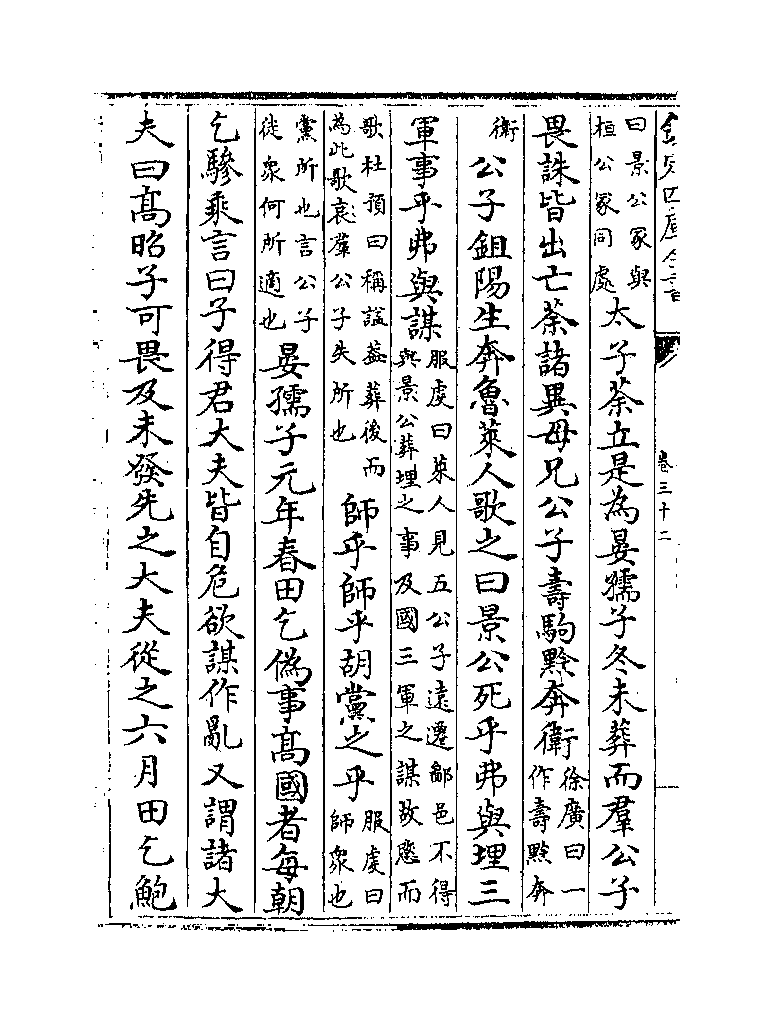 欽定四庫全書 卷三十二
曰景公冢與桓公冢同處太子荼立是為晏孺子冬未葬而羣公子
畏誅皆出亡荼諸異母兄公子壽駒黔奔衛徐廣曰一作壽黔奔
衛公子鉏陽生奔魯萊人歌之曰景公死乎弗與埋三
軍事乎弗與謀服虔曰萊人見五公子遠遷鄙邑不得與景公葬埋之事及國三軍之謀故愍而
歌杜預曰稱諡葢葬後而為此歌哀羣公子失所也師乎師乎胡黨之乎服虔曰師衆也
黨所也言公子徒衆何所適也晏孺子元年春田乞偽事髙國者每朝
乞驂乘言曰子得君大夫皆自危欲謀作亂又謂諸大
夫曰髙昭子可畏及未發先之大夫從之六月田乞鮑